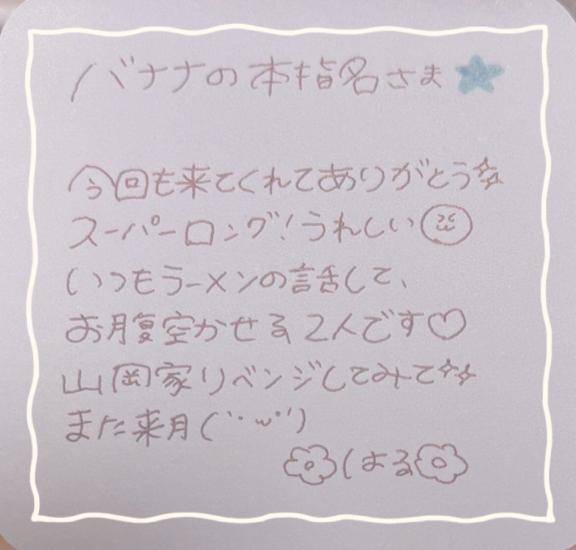 バナナの本指名さま
今回も来てくれてありがとう
スーパーロング!うれしい
いつもラーメンの話して、
お腹空かせる2人です♡
山岡家リベンジしてみて
また来月(´･ω･`)
はる